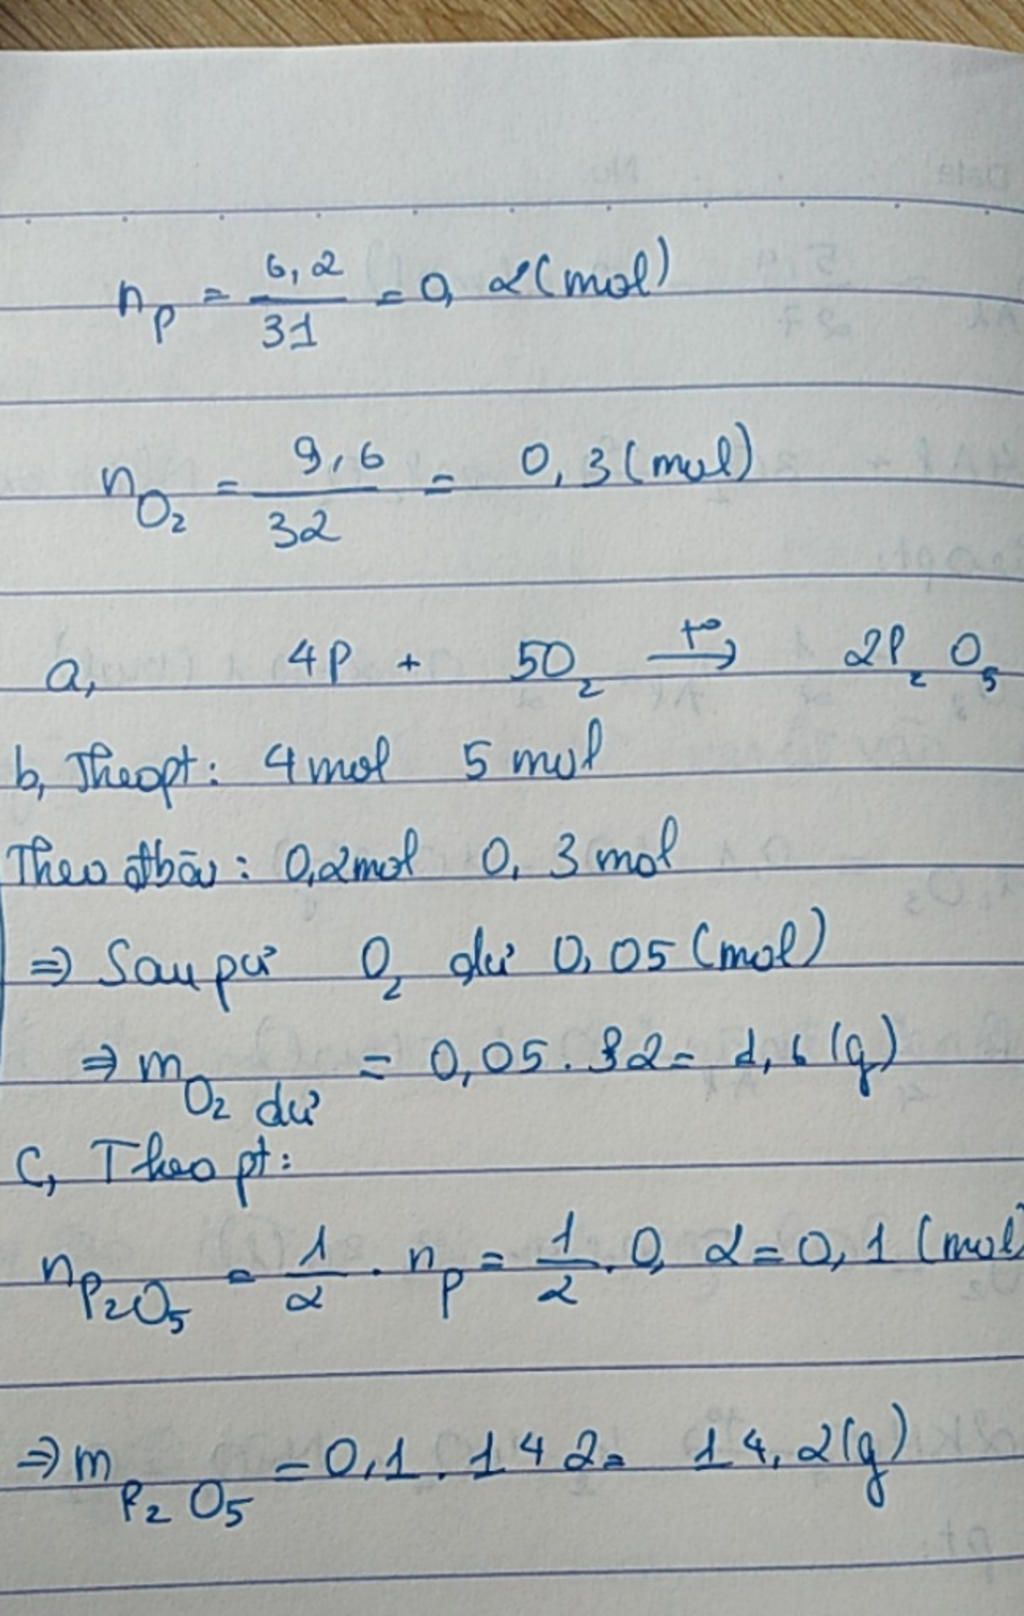 n_P = 6,2/31 = 0,2 (mol)
n_O₂ = 9,6/32 = 0,3 (mol)
a, 4P + 5O₂ t°→ 2P₂O₅
b, Theo pt: 4 mol 5 mol
Theo đbài: 0,2 mol 0,3 mol
⇒ Sau pứ O₂ dư 0,05 (mol)
⇒ m_O₂ dư = 0,05 . 32 = 1,6 (g)
c, Theo pt:
n_P₂O₅ = 1/2 . n_P = 1/2 . 0,2 = 0,1 (mol)
⇒ m_P₂O₅ = 0,1 . 142 = 14,2 (g)